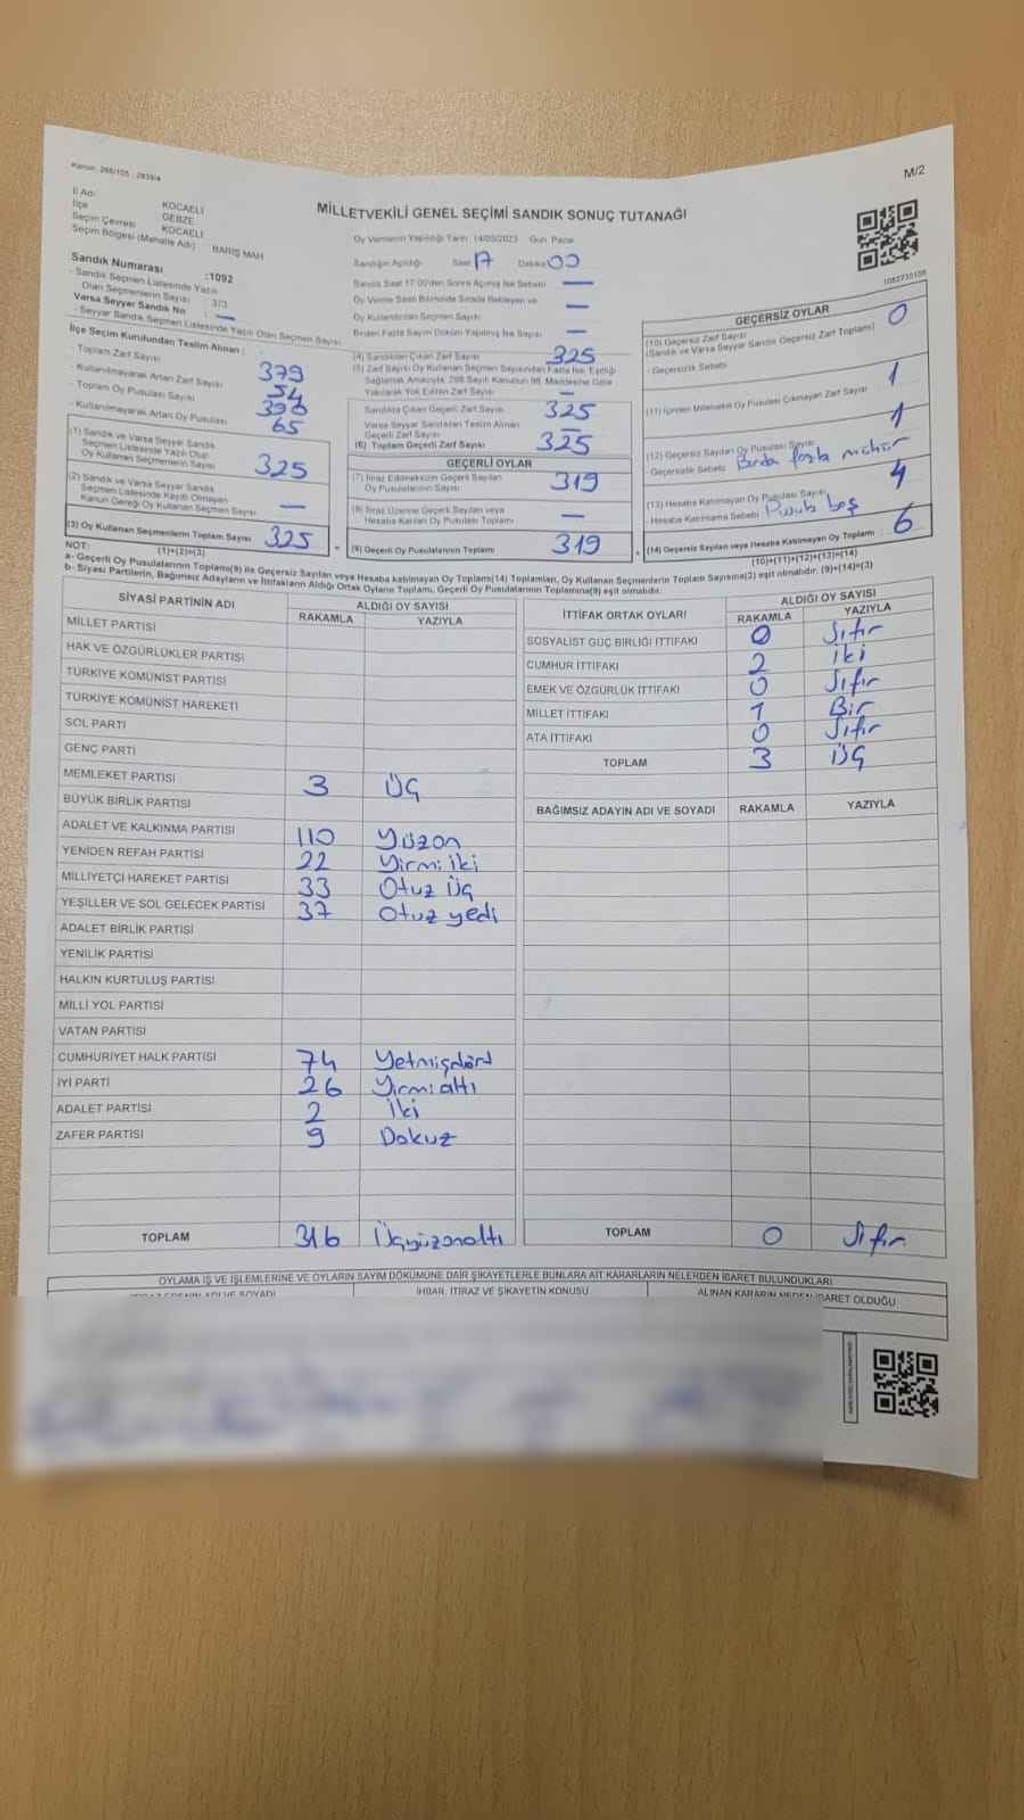 Kanun: 298/105 : 2839/4
M/2
İl Adı KOCAELİ
İlçe GEBZE
Seçim Çevresi KOCAELİ
Seçim Bölgesi (Mahalle Adı) BARIŞ MAH
MİLLETVEKİLİ GENEL SEÇİMİ SANDIK SONUÇ TUTANAĞI
Oy Vermenin Yapıldığı Tarih :14/05/2023 Gün: Pazar
Sandığın Açıldığı Saat 17 Dakika 00
1082735108
Sandık Numarası :1092
- Sandık Seçmen Listesinde Yazılı
Olan Seçmenlerin Sayısı : 373
Varsa Seyyar Sandık No : —
- Seyyar Sandık Seçmen Listesinde Yazılı Olan Seçmen Sayısı
Sandık Saat 17:00'den Sonra Açılmış İse Sebebi —
Oy Verme Saati Bitiminde Sırada Bekleyen ve
Oy Kullandırılan Seçmen Sayısı —
Birden Fazla Sayım Döküm Yapılmış İse Sayısı —
İlçe Seçim Kurulundan Teslim Alınan :
- Toplam Zarf Sayısı 379
- Kullanılmayarak Artan Zarf Sayısı 54
- Toplam Oy Pusulası Sayısı
- Kullanılmayarak Artan Oy Pusulası 65
(1) Sandık ve Varsa Seyyar Sandık
Seçmen Listesinde Yazılı Olup
Oy Kullanan Seçmenlerin Sayısı 325
(2) Sandık ve Varsa Seyyar Sandık
Seçmen Listesinde Kayıtlı Olmayan
Kanun Gereği Oy Kullanan Seçmen Sayısı —
(3) Oy Kullanan Seçmenlerin Toplam Sayısı 325
(1)+(2)=(3)
(4) Sandıktan Çıkan Zarf Sayısı 325
(5) Zarf Sayısı Oy Kullanan Seçmen Sayısından Fazla İse, Eşitliği
Sağlamak Amacıyla, 298 Sayılı Kanunun 98. Maddesine Göre
Yakılarak Yok Edilen Zarf Sayısı —
Sandıkta Çıkan Geçerli Zarf Sayısı 325
Varsa Seyyar Sandıktan Teslim Alınan
Geçerli Zarf Sayısı —
(6) Toplam Geçerli Zarf Sayısı 325
GEÇERLİ OYLAR
(7) İtiraz Edilmeksizin Geçerli Sayılan
Oy Pusulalarının Sayısı 319
(8) İtiraz Üzerine Geçerli Sayılan veya
Hesaba Katılan Oy Pusulası Toplamı —
(9) Geçerli Oy Pusulalarının Toplamı 319
GEÇERSİZ OYLAR
(10) Geçersiz Zarf Sayısı
(Sandık ve Varsa Seyyar Sandık Geçersiz Zarf Toplamı) 0
- Geçersizlik Sebebi
(11) İçinden Milletvekili Oy Pusulası Çıkmayan Zarf Sayısı 1
(12) Geçersiz Sayılan Oy Pusulası Sayısı 1
Geçersizlik Sebebi Birden fazla mühür
(13) Hesaba Katılmayan Oy Pusulası Sayısı 4
Hesaba Katılmama Sebebi Pusula boş
(14) Geçersiz Sayılan veya Hesaba Katılmayan Oy Toplamı 6
(10)+(11)+(12)+(13)=(14)
NOT:
a- Geçerli Oy Pusulalarının Toplamı(9) ile Geçersiz Sayılan veya Hesaba katılmayan Oy Toplamı(14) Toplamları, Oy Kullanan Seçmenlerin Toplam Sayısına(3) eşit olmalıdır. (9)+(14)=(3)
b- Siyasi Partilerin, Bağımsız Adayların ve İttifakların Aldığı Ortak Oyların Toplamı, Geçerli Oy Pusulalarının Toplamına(9) eşit olmalıdır.
SİYASİ PARTİNİN ADI ALDIĞI OY SAYISI
RAKAMLA YAZIYLA
MİLLET PARTİSİ
HAK VE ÖZGÜRLÜKLER PARTİSİ
TÜRKİYE KOMÜNİST PARTİSİ
TÜRKİYE KOMÜNİST HAREKETİ
SOL PARTİ
GENÇ PARTİ
MEMLEKET PARTİSİ 3 Üç
BÜYÜK BİRLİK PARTİSİ
ADALET VE KALKINMA PARTİSİ 110 Yüzon
YENİDEN REFAH PARTİSİ 22 Yirmi iki
MİLLİYETÇİ HAREKET PARTİSİ 33 Otuz üç
YEŞİLLER VE SOL GELECEK PARTİSİ 37 Otuz yedi
ADALET BİRLİK PARTİSİ
YENİLİK PARTİSİ
HALKIN KURTULUŞ PARTİSİ
MİLLİ YOL PARTİSİ
VATAN PARTİSİ
CUMHURİYET HALK PARTİSİ 74 Yetmişdört
İYİ PARTİ 26 Yirmi altı
ADALET PARTİSİ 2 İki
ZAFER PARTİSİ 9 Dokuz
TOPLAM 316 Üçyüzonaltı
İTTİFAK ORTAK OYLARI ALDIĞI OY SAYISI
RAKAMLA YAZIYLA
SOSYALİST GÜÇ BİRLİĞİ İTTİFAKI 0 Sıfır
CUMHUR İTTİFAKI 2 iki
EMEK VE ÖZGÜRLÜK İTTİFAKI 0 Sıfır
MİLLET İTTİFAKI 1 Bir
ATA İTTİFAKI 0 Sıfır
TOPLAM 3 Üç
BAĞIMSIZ ADAYIN ADI VE SOYADI RAKAMLA YAZIYLA
TOPLAM 0 Sıfır
OYLAMA İŞ VE İŞLEMLERİNE VE OYLARIN SAYIM DÖKÜMÜNE DAİR ŞİKAYETLERLE BUNLARA AİT KARARLARIN NELERDEN İBARET BULUNDUKLARI
ADI VE SOYADI İHBAR, İTİRAZ VE ŞİKAYETİN KONUSU ALINAN KARARIN NEDEN İBARET OLDUĞU